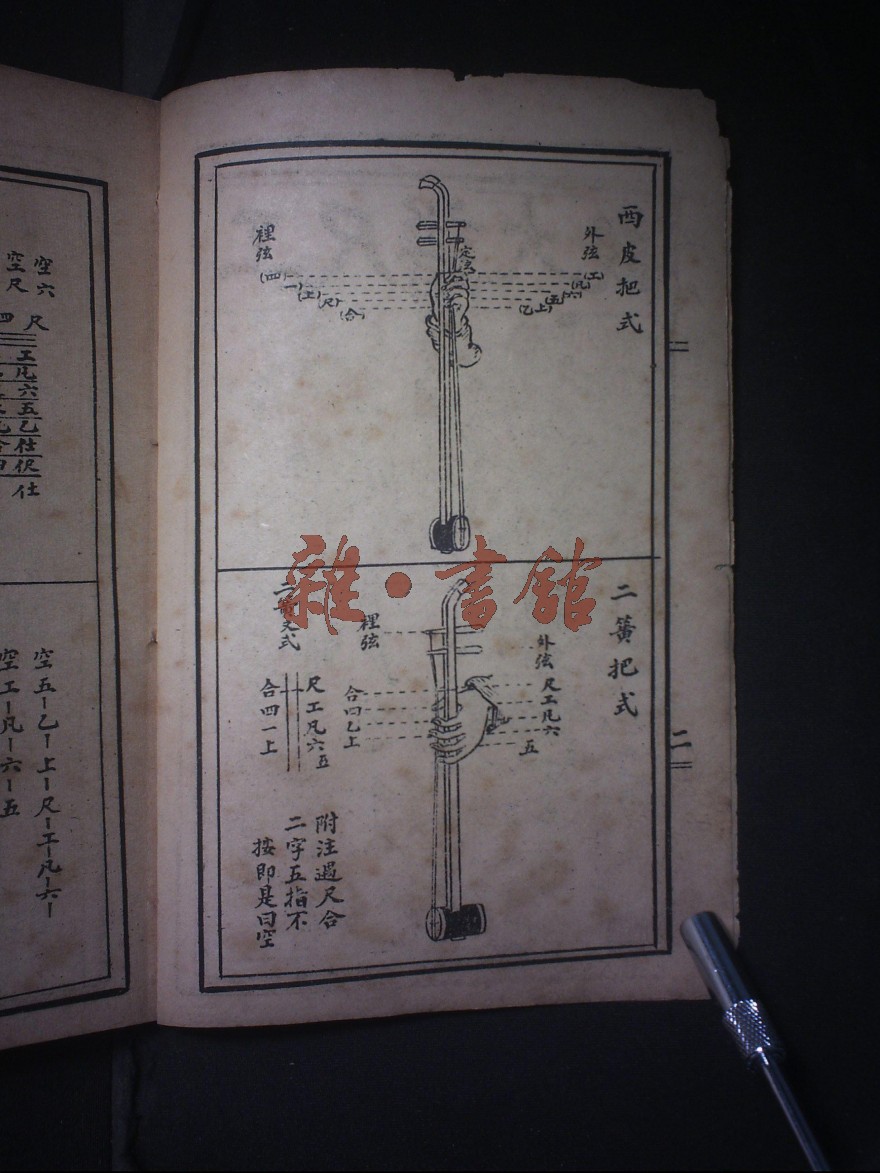 西皮把式
外弦
(工)
(凡)
(六)
(五)
(上)
(乙)
裡弦
(四)
(一)
(上)
(尺)
(合)
二簧把式
外弦
尺工凡六
五
裡弦
合四乙上
尺工凡六五
合四一上
附注遇尺合
二字五指不
按即是曰空
二
空六
空尺
尺
四
工
凡
六
五
乙
仕
伬
仕
空五乙上尺工凡六
空工凡六五
雜·書館